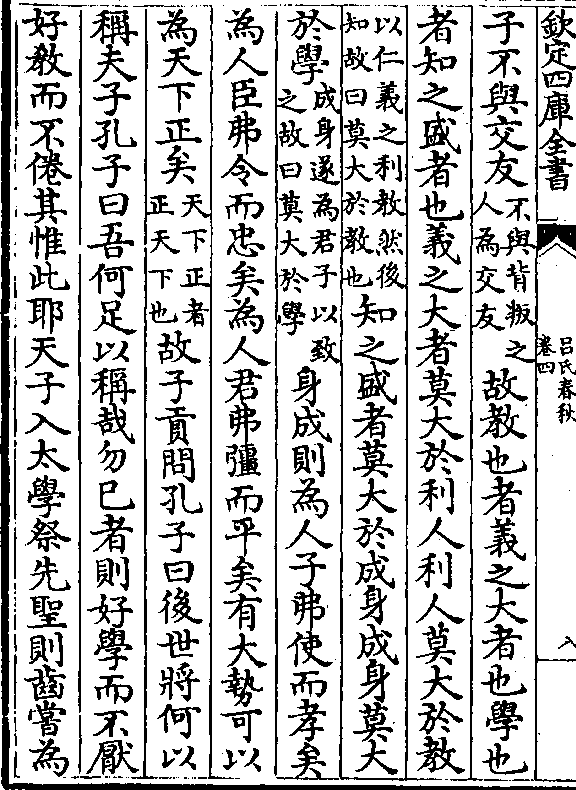 欽定四庫全書
呂氏春秋
卷四
八
子不與交友不與背叛之人為交友故教也者義之大者也學也
者知之盛者也義之大者莫大於利人利人莫大於教
以仁義之利教然後知故曰莫大於教也知之盛者莫大於成身成身莫大
於學成身遂為君子以致之故曰莫大於學身成則為人子弗使而孝矣
為人臣弗令而忠矣為人君弗彊而平矣有大勢可以
為天下正矣天下正者正天下也故子貢問孔子曰後世將何以
稱夫子孔子曰吾何足以稱哉勿巳者則好學而不厭
好教而不倦其惟此耶天子入太學祭先聖則齒嘗為